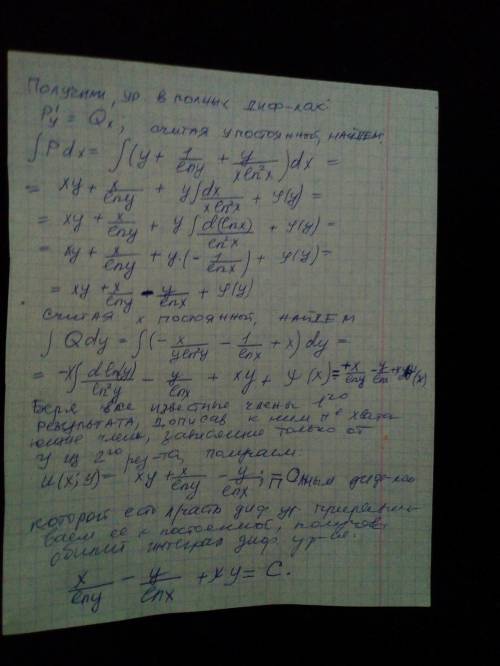 Получили, ур. в полных диф-лах:
P'y = Qx, считая y постоянной, найдем
∫Pdx = ∫(y + 1/ln y + y/(x ln²x))dx =
= xy + x/ln y + y∫dx/(x ln²x) + φ(y) =
= xy + x/ln y + y∫d(ln x)/ln²x + φ(y) =
= xy + x/ln y + y·(-1/ln x) + φ(y) =
= xy + x/ln y - y/ln x + φ(y)
считая x постоянной, найдем
∫Qdy = ∫(-x/(y ln²y) - 1/ln x + x)dy =
= -x∫d ln(y)/ln²y - y/ln x + xy + ψ(x) = +x/ln y - y/ln x + xy + ψ(x)
Беря все известные члены 1го
результата, дописав к ним н е хвата
ющие члены, зависящие только от
y из 2го рез-та, получаем:
u(x; y) = xy + x/ln y - y/ln x; полным диф-лом
которой есть л. часть диф. ур. приравни-
ваем ее к постоянной, получаем
общий интеграл диф. ур-я:
x/ln y - y/ln x + xy = C.